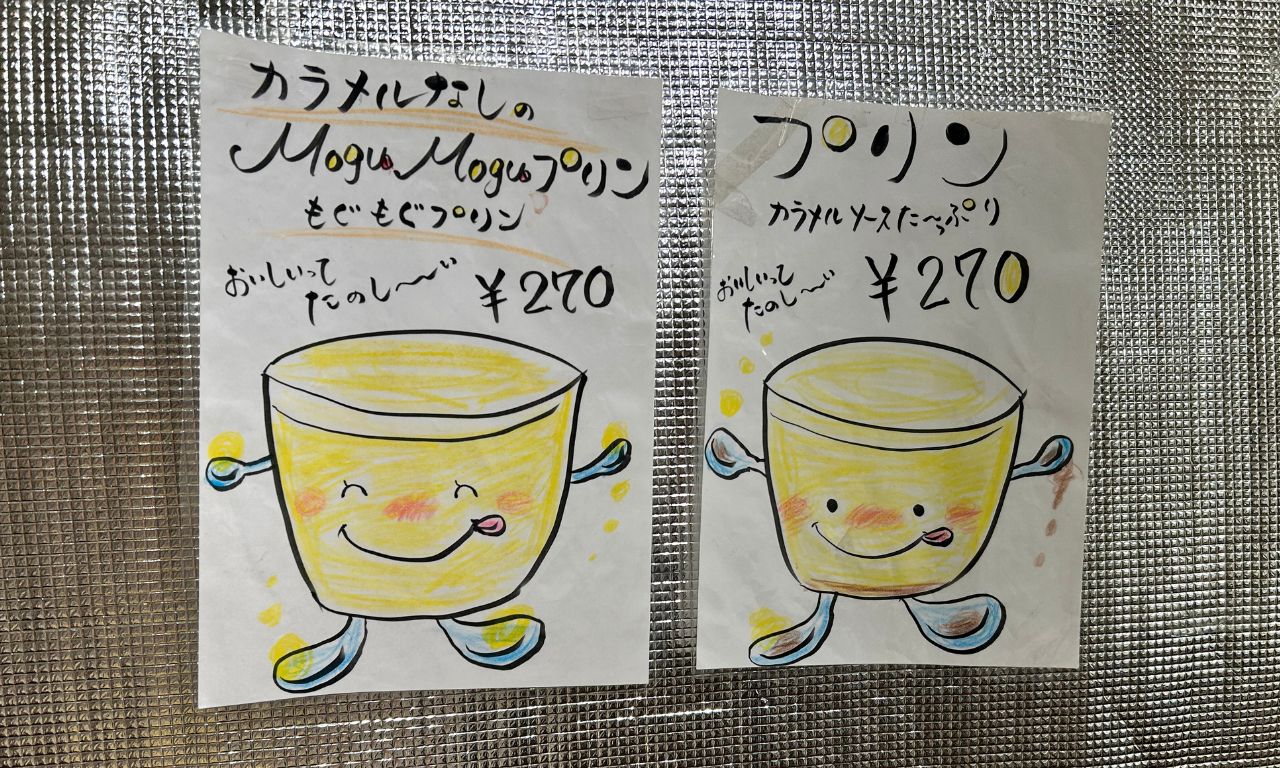 カラメルなしの
MoguMoguプリン
もぐもぐプリン
おいしいって
たのし〜い
¥270
プリン
カラメルソースた〜っぷり
おいしいって
たのし〜い
¥270